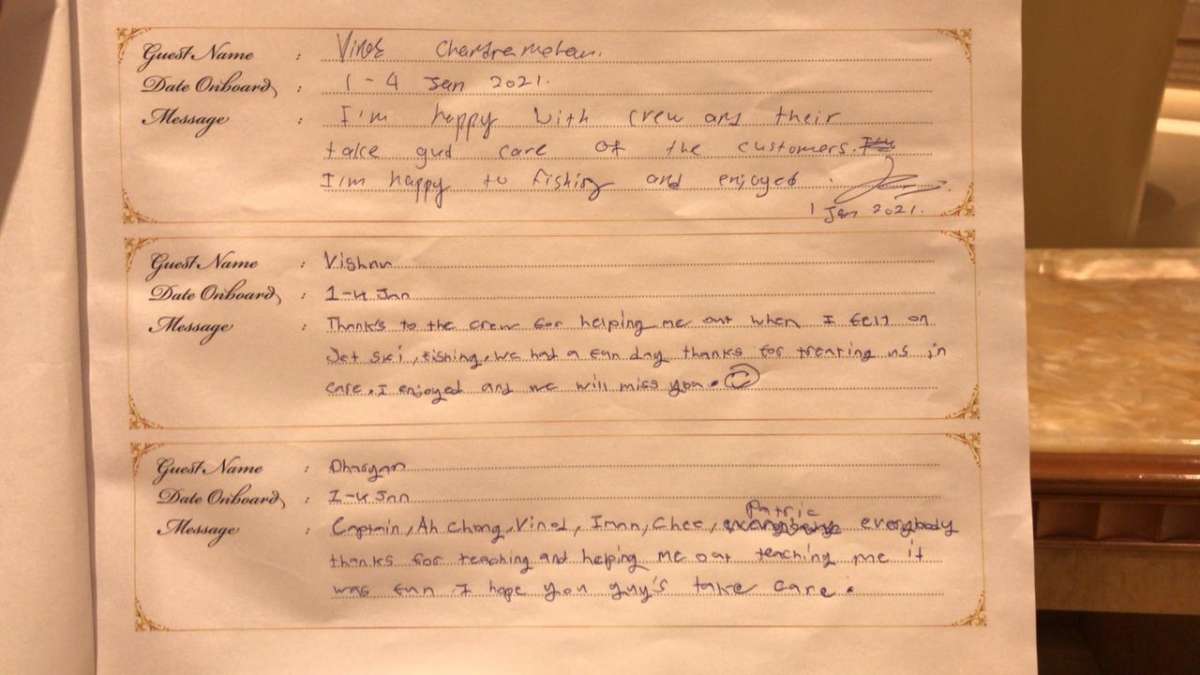 Guest Name : Vinod Chandramohan.
Date Onboard : 1 - 4 Jan 2021.
Message : I'm happy with crew and their
take gud care of the customers.
I'm happy to fishing and enjoyed.
1 Jan 2021.
Guest Name : Vishnu
Date Onboard : 1-4 Jan
Message : Thank's to the crew for helping me out when I fell on
Jet ski, fishing, we had a fun day thanks for treating us in
care, I enjoyed and we will miss you.
Guest Name :
Date Onboard : 1-4 Jan
Patric
Message : Captain, Ah Chong, Vinod, Iman, Chee, everybody
thanks for teaching and helping me out teaching me it
was fun I hope you guy's take care.